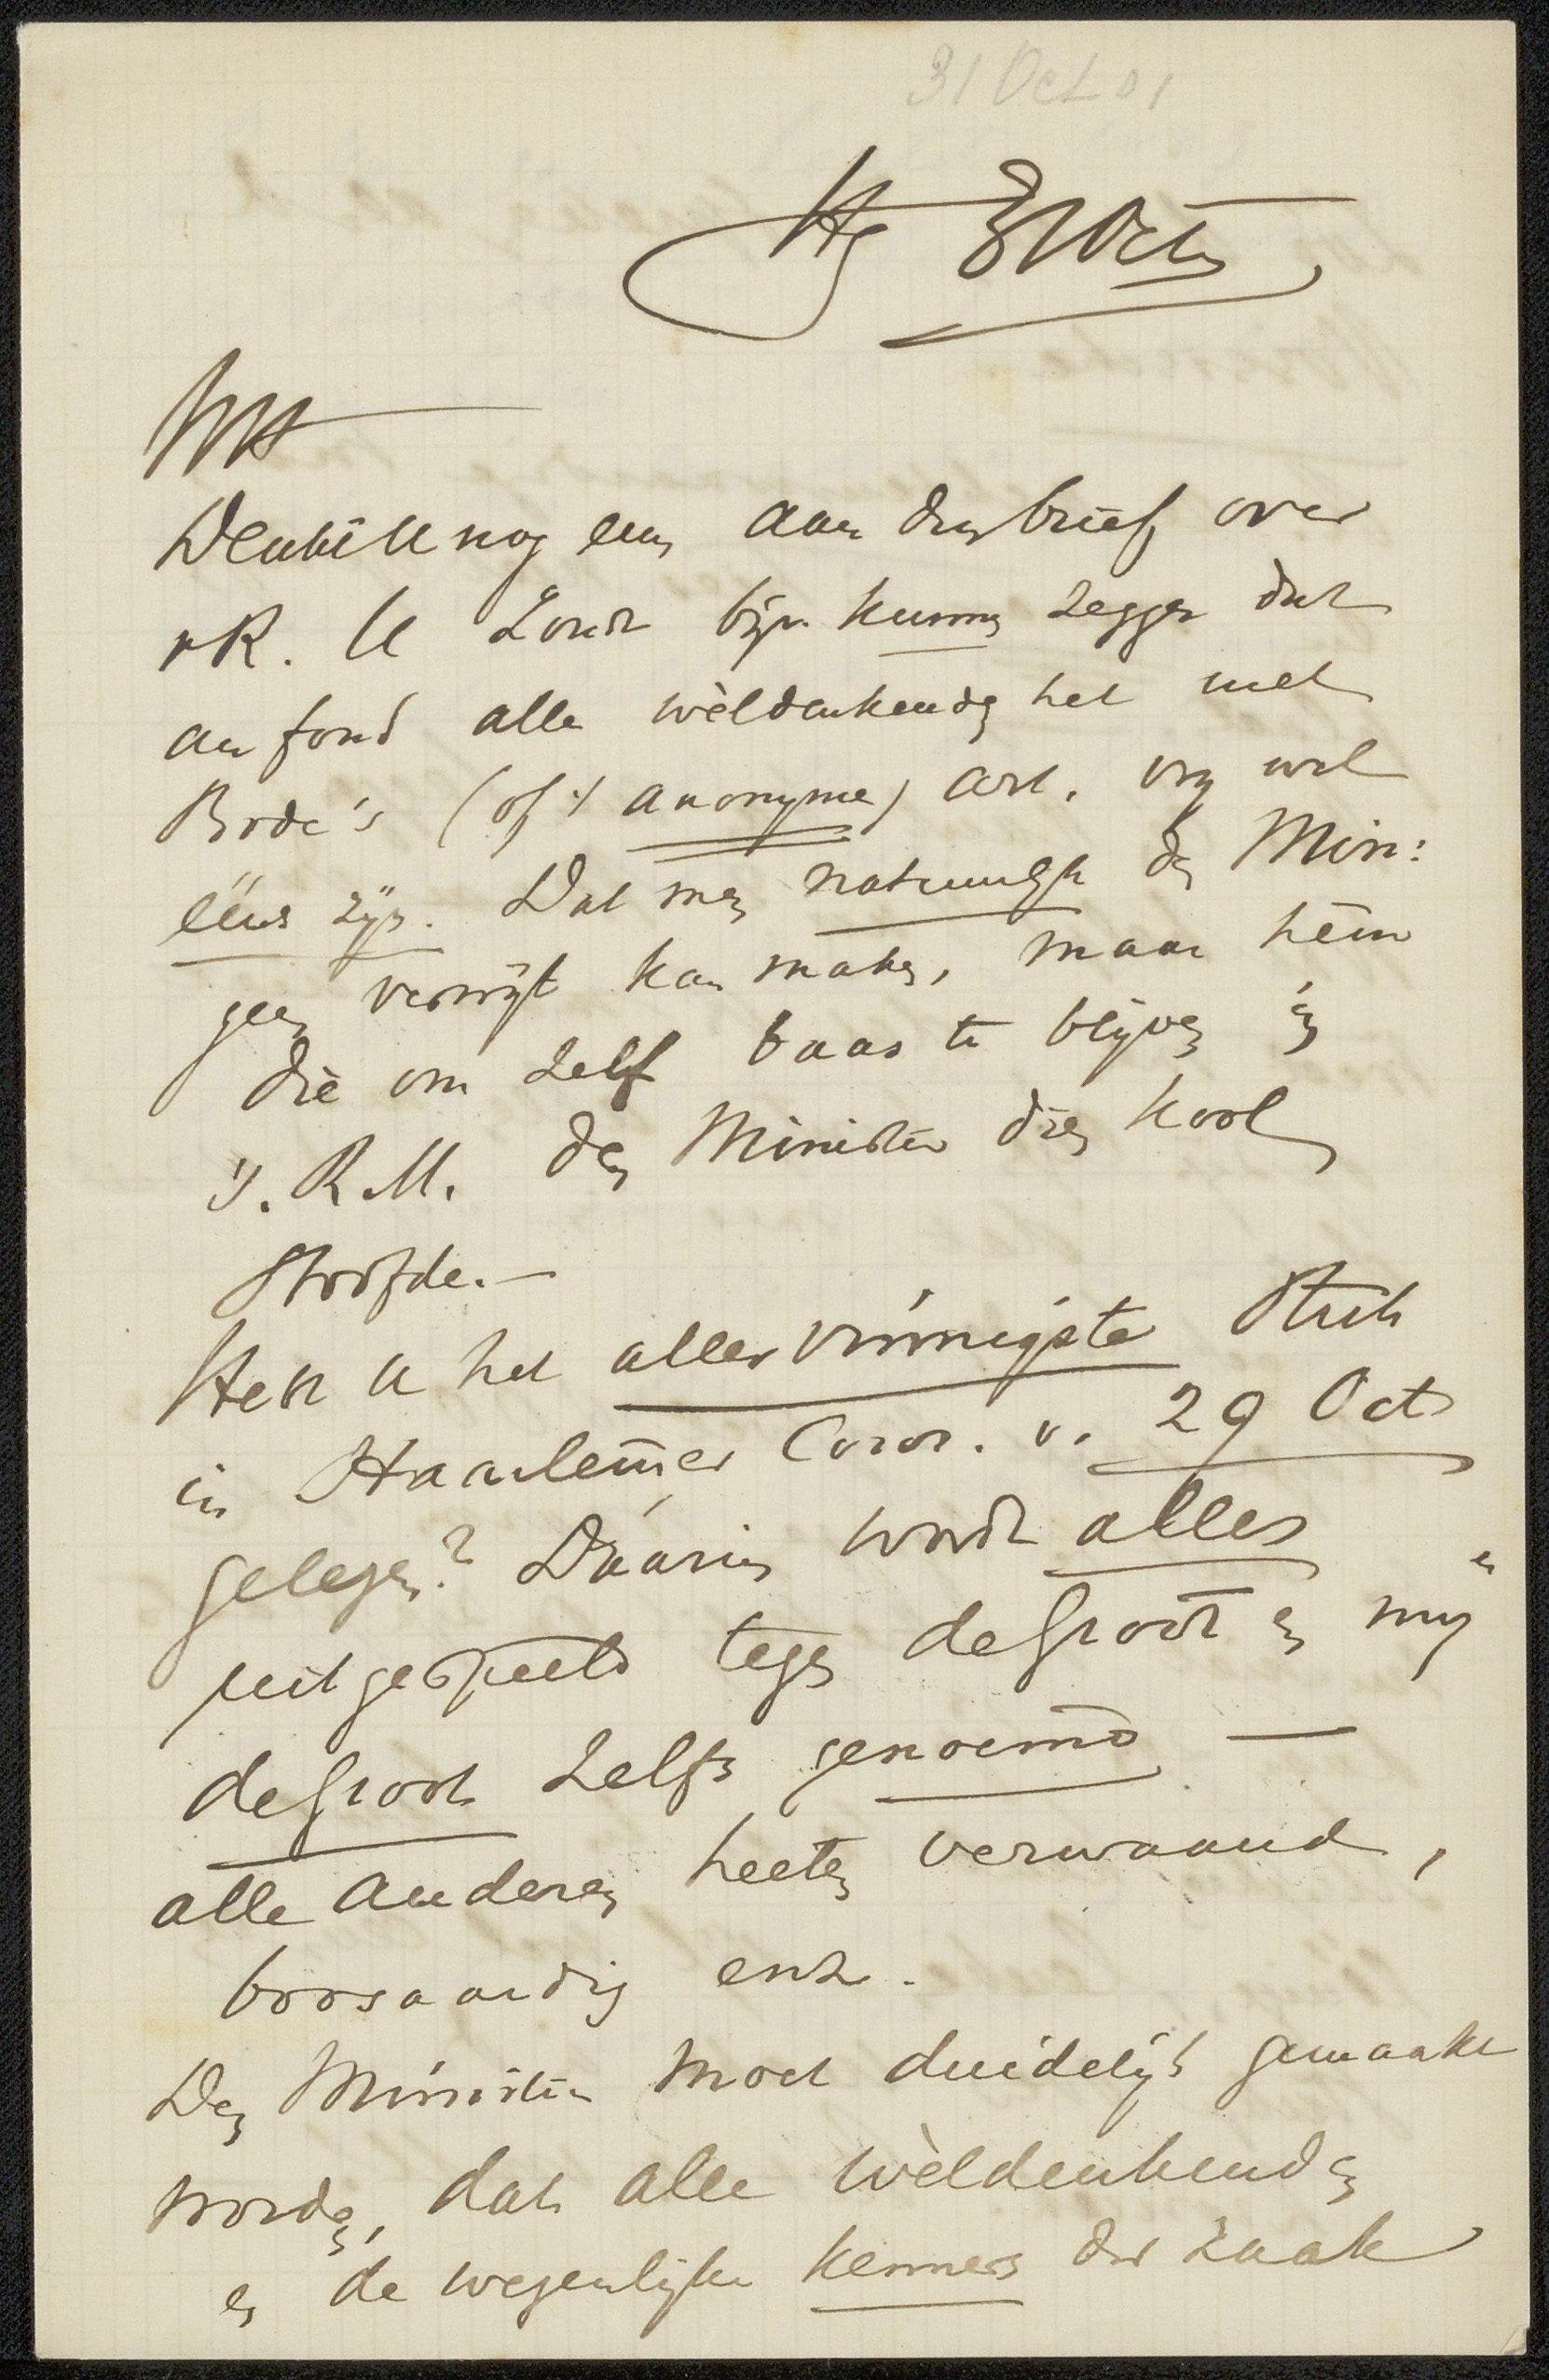 31 Oct 01
Hg 31 Oct
WH
Denkt U nog eens aan den brief over
rR. U zoudt bijv. kunnen zeggen dat
au fond alle wèldenkenden het met
Bode's (of 't anonyme) art. vrij wel
ééns zijn. Dat men natuurlijk den Min:
geen verwijt kan maken, maar hem
die om zelf baas te blijven in
's. R.M. den Minister dien kool
stoofde. —
Hebt U het allervinnigste stuk
in Haarlemmer Cour. v. 29 Oct
gelezen? Dáárin wordt alles
uitgespeeld tegen de Groot en mij en
de Groot zelfs genoemd —
alle anderen heeten verwaand,
boosaardig enz.
Den Minister moet duidelijk gemaakt
worden, dat alle wèldenkenden
en de wezenlijke kenners der zaak